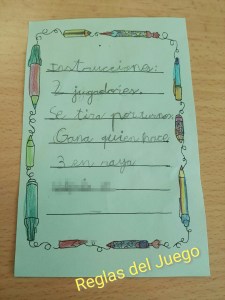 Instrucciones:
2 jugadores.
Se tira por turnos
Gana quien hace
3 en raya
Reglas del Juego